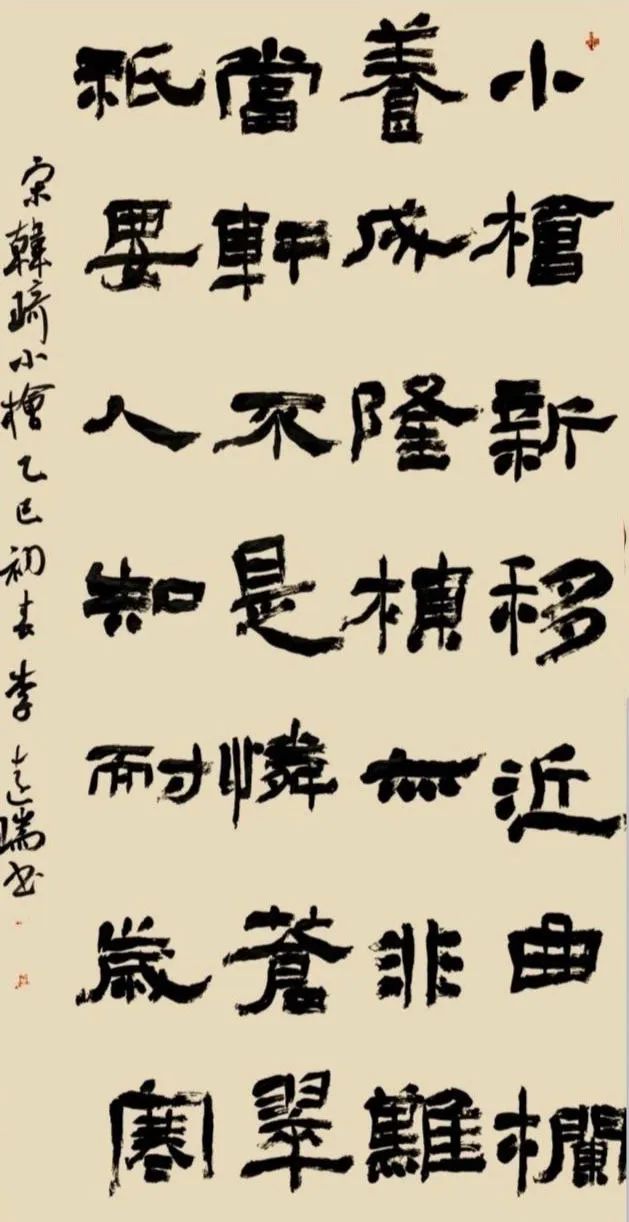 小檜新移近曲欄
養成隆楨無非難
當軒不是憐蒼翠
秖要人知耐歲寒
宋韓琦小檜乙巳初春李瑞书